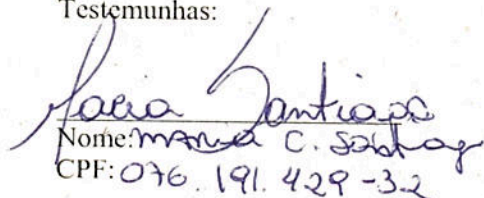 Testemunhas:
Maria Santiago
Nome: MARIA C. Santiago
CPF: 076.191.429-32